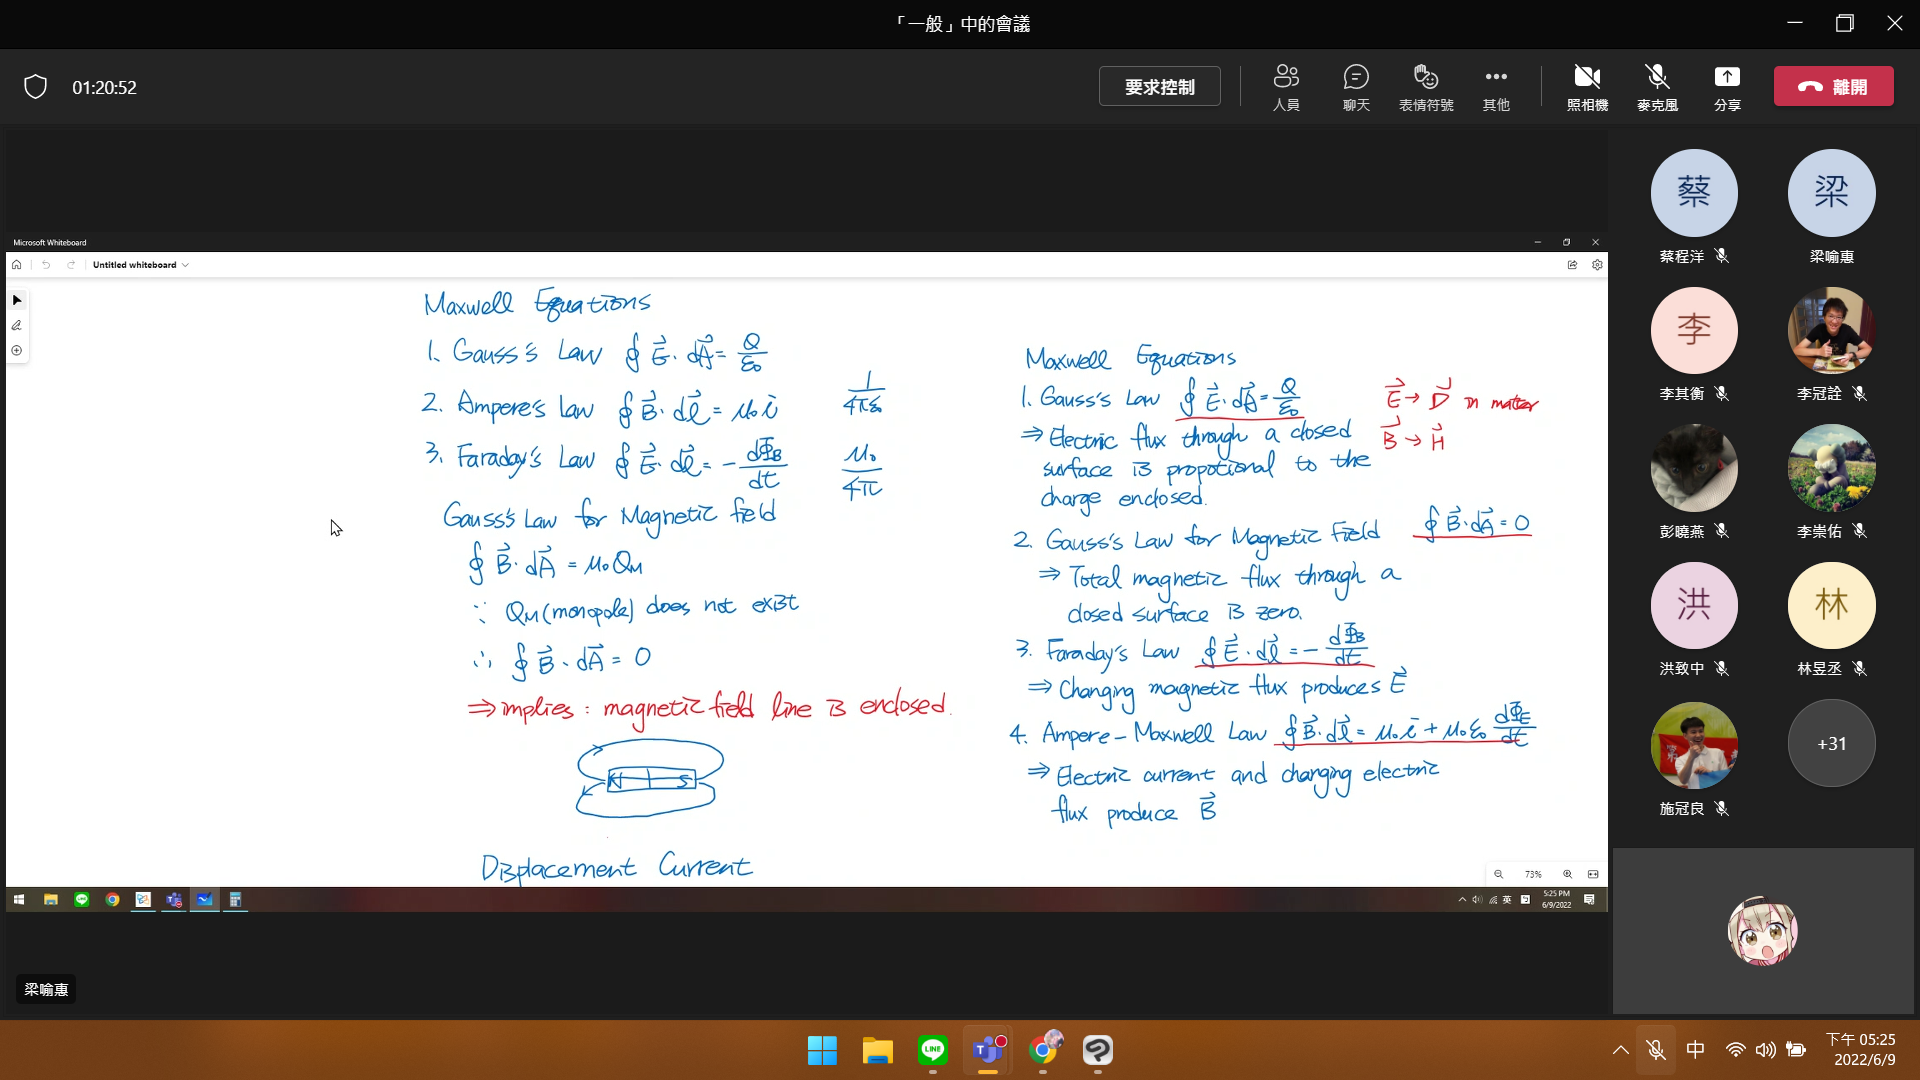 「一般」中的會議
01:20:52
要求控制
人員
聊天
表情符號
其他
照相機
麥克風
分享
離開
Microsoft Whiteboard
Untitled whiteboard
Maxwell Equations
1. Gauss's Law ∮ E⃗ · dA⃗ = Q/ε₀
2. Ampere's Law ∮ B⃗ · dl⃗ = μ₀i
1/4πε₀
3. Faraday's Law ∮ E⃗ · dl⃗ = − dΦB/dt
μ₀/4π
Gauss's Law for Magnetic field
∮ B⃗ · dA⃗ = μ₀QM
∵ QM(monopole) does not exist
∴ ∮ B⃗ · dA⃗ = 0
⇒ implies : magnetic field line is enclosed.
N S
Displacement Current
Maxwell Equations
1. Gauss's Law ∮ E⃗ · dA⃗ = Q/ε₀
E⃗ → D⃗ in matter
B⃗ → H⃗
⇒ Electric flux through a closed
surface is propotional to the
charge enclosed.
2. Gauss's Law for Magnetic Field ∮ B⃗ · dA⃗ = 0
⇒ Total magnetic flux through a
closed surface is zero.
3. Faraday's Law ∮ E⃗ · dl⃗ = − dΦB/dt
⇒ Changing magnetic flux produces E⃗
4. Ampere-Maxwell Law ∮ B⃗ · dl⃗ = μ₀i + μ₀ε₀ dΦE/dt
⇒ Electric current and changing electric
flux produce B⃗
73%
英
5:25 PM
6/9/2022
梁喻惠
蔡
梁
蔡程洋
梁喻惠
李
李其衡
李冠詮
彭曉燕
李崇佑
洪
林
洪致中
林昱丞
施冠良
+31
LINE
中
下午 05:25
2022/6/9